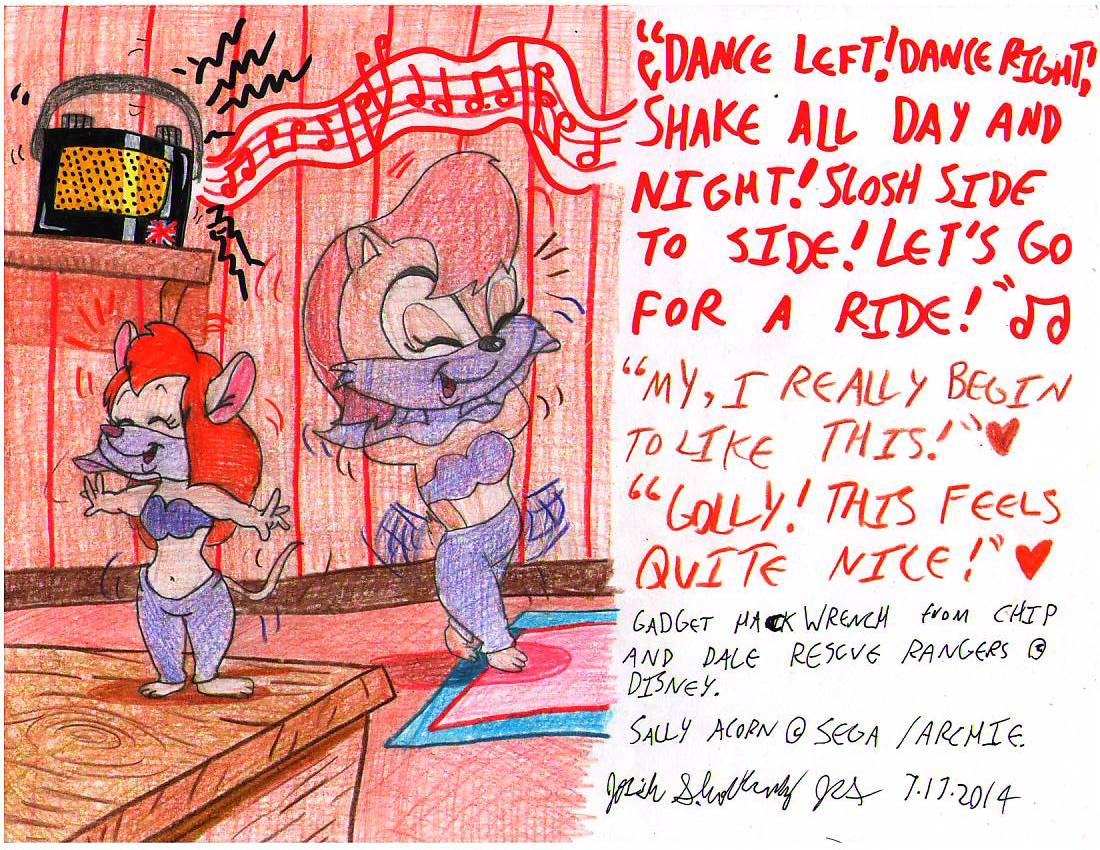 “DANCE LEFT! DANCE RIGHT,
SHAKE ALL DAY AND
NIGHT! SLOSH SIDE
TO SIDE! LET'S GO
FOR A RIDE!”
“MY, I REALLY BEGIN
TO LIKE THIS!”
“GOLLY! THIS FEELS
QUITE NICE!”
GADGET HACKWRENCH from CHIP
AND DALE RESCUE RANGERS ©
DISNEY.
SALLY ACORN @ SEGA / ARCHIE.
7.17.2014